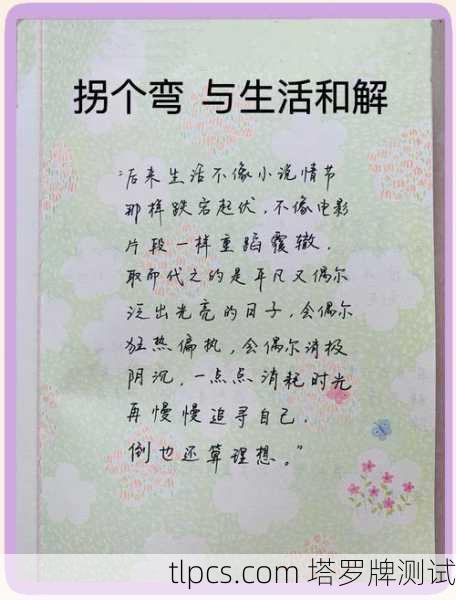 拐个弯 与生活和解
“后来生活不像小说情节
那样跌宕起伏,不像电影
片段一样重蹈覆辙,
取而代之的是平凡又偶尔
泛出光亮的日子,会偶尔
狂热偏执,会偶尔消极
阴沉,一点点消耗时光
再慢慢追寻自己.
倒也还算理想。”
tlpcs.com 塔罗牌测试